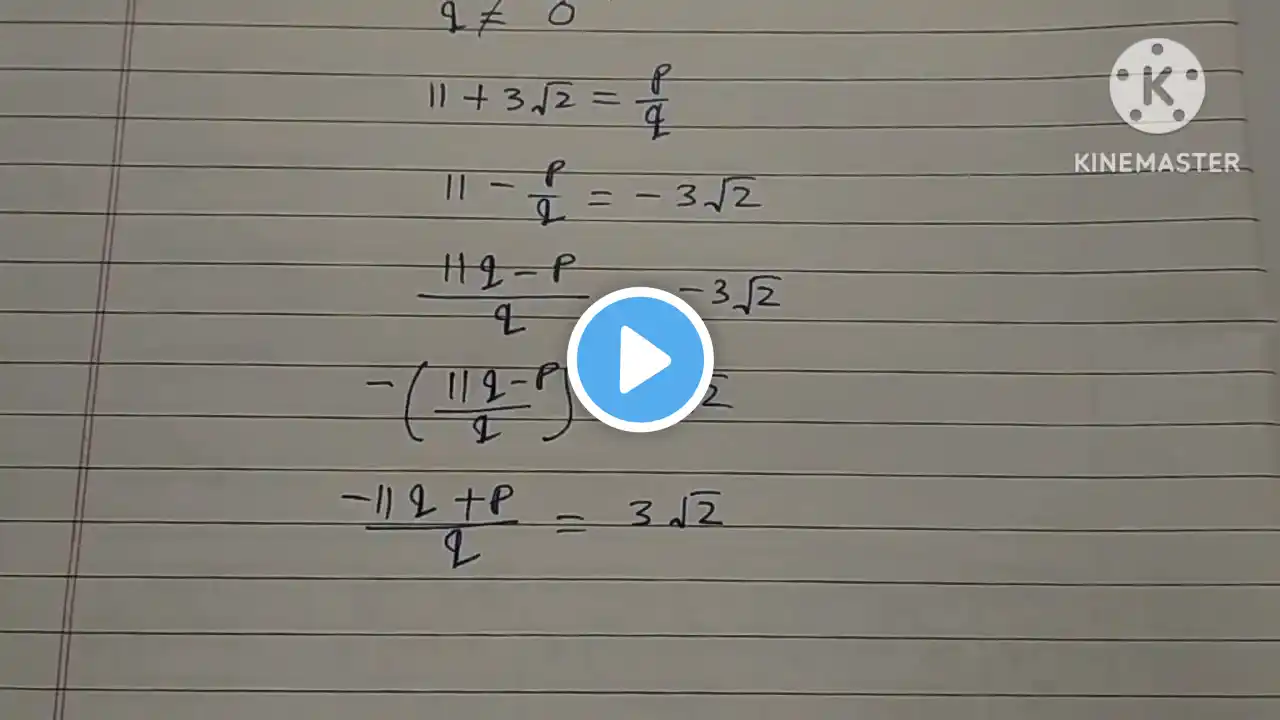 q ≠ 0
11 + 3√2 = p/q
11 - p/q = - 3√2
(11q - p)/q - 3√2
- ((11q - p)/q) 2
(-11q + p)/q = 3√2
K
KINEMASTER